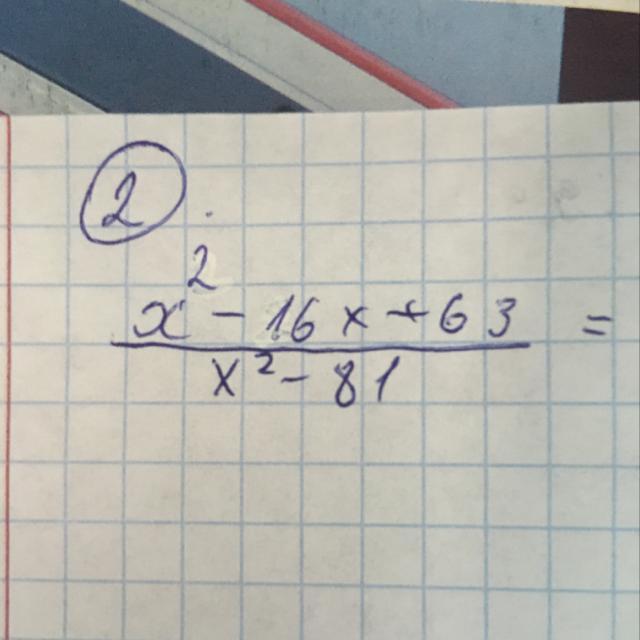 2
x² - 16x + 63 =
x² - 81